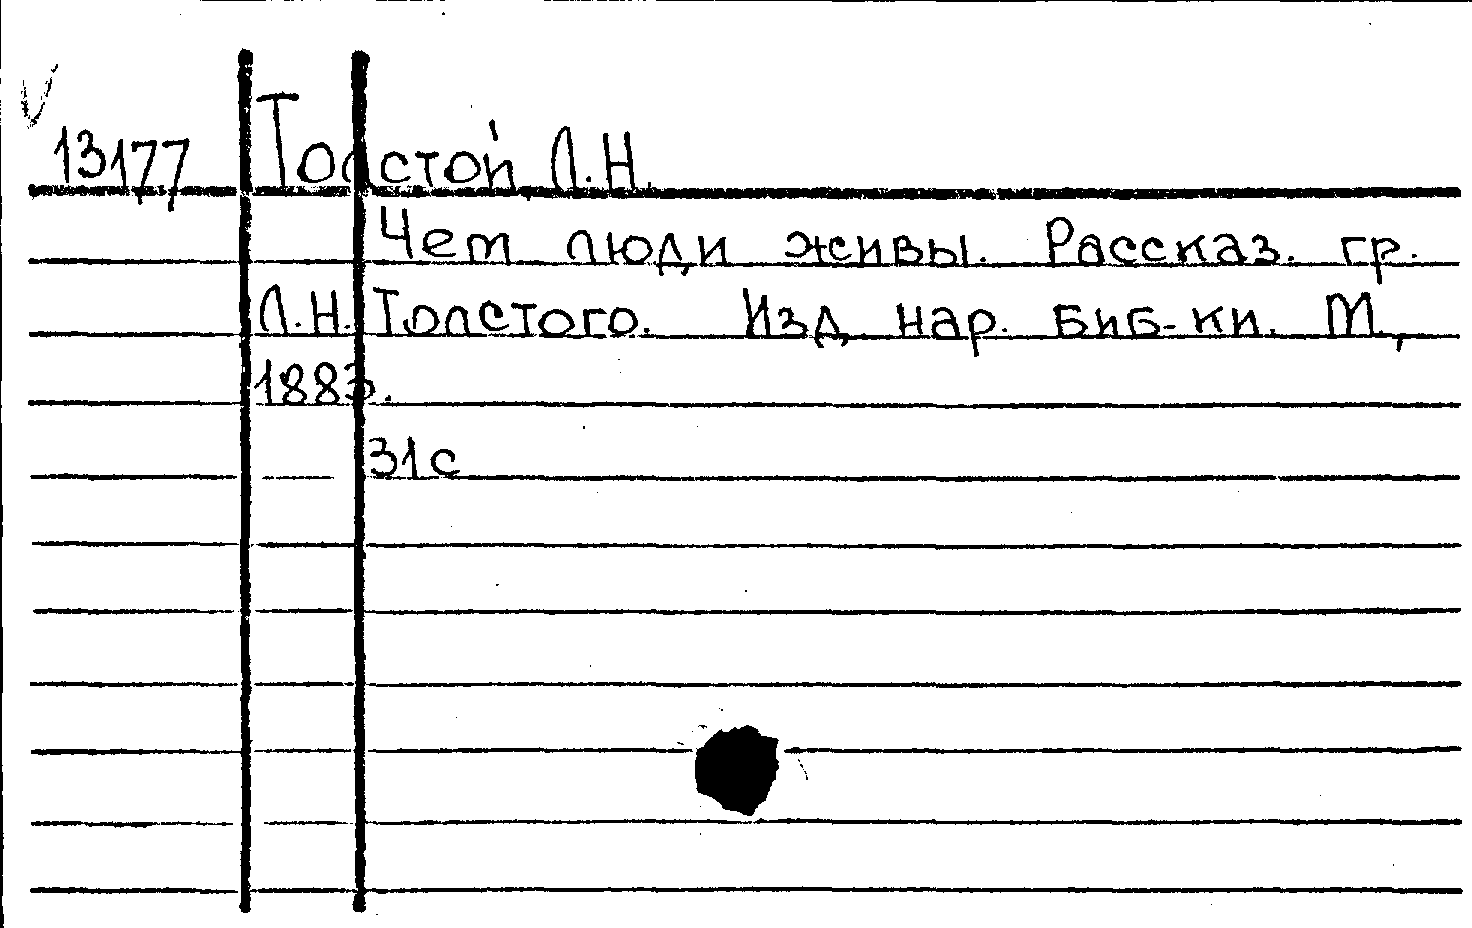 13177 Толстой Л.Н.
Чем люди живы. Рассказ. гр.
Л.Н. Толстого. Изд. нар. биб-ки. М.,
1883.
31с